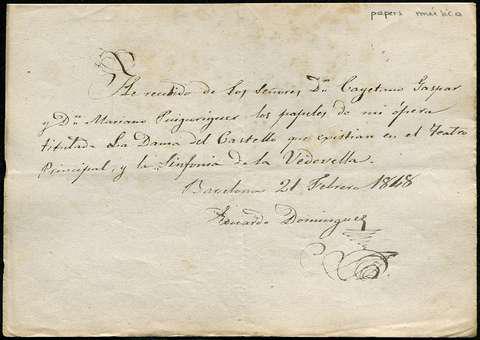 papers música
He recibido de los Señores Dn Cayetano Gaspar
y Dn Mariano Puigoriguer los papeles de mi ópera
titulada La Dama del Castello que existian en el Teatro
Principal, y la Sinfonia de la Vedovella.
Barcelona 21 Febrero 1848
Eduardo Dominguez